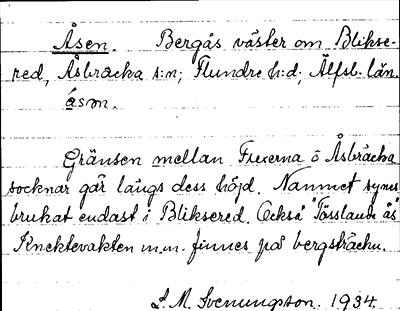 Åsen. Bergås väster om Blikse-
red, Åsbräcka s:n; Flundre h:d; Älfsb. län.
åsɷn.
Gränsen mellan Fuxerna o Åsbräcka
socknar går längs dess höjd. Namnet synes
brukat endast i Bliksered. Också "Tösslanda ås"
Knektevakten m.m. finnes på bergsträckn.
S. M. Svenungsson. 1934.